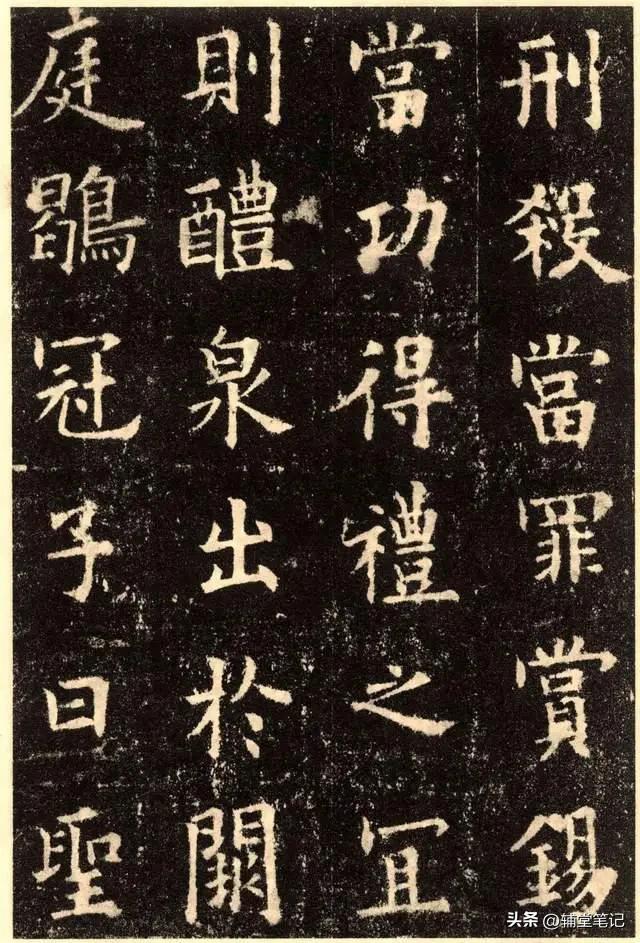 刑殺當罪賞錫
當功得禮之宜
則醴泉出於闕
庭鶡冠子曰聖
头条 @辅堂笔记